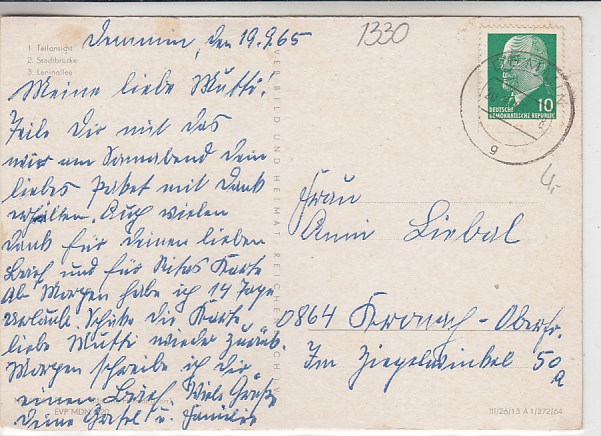 Demmin, den 19.9.65
1330
1. Teilansicht
2. Stadtbrücke
3. Leninallee
Meine liebe Mutti!
Teile Dir mit das
wir am Sonnabend dein
liebes Paket mit Dank
erhalten. Auch vielen
Dank für deinen lieben
Brief und für Ritas Karte
Ab Morgen habe ich 14 Tage
Urlaub. Schicke die Karte
liebe Mutti wieder zurück.
Morgen schreibe ich dir
einen Brief. Viele Grüße
Deine Gretel u. Familie
EVP MDN
VERLAG BILD UND HEIMAT REICHENBACH
DEMMIN
g
10
DEUTSCHE
DEMOKRATISCHE REPUBLIK
4,-
Frau
Anni Liebal
0864 Kronach-Oberfr.
Im Ziegelwinkel 50
a
III/26/13 A 1/272/64